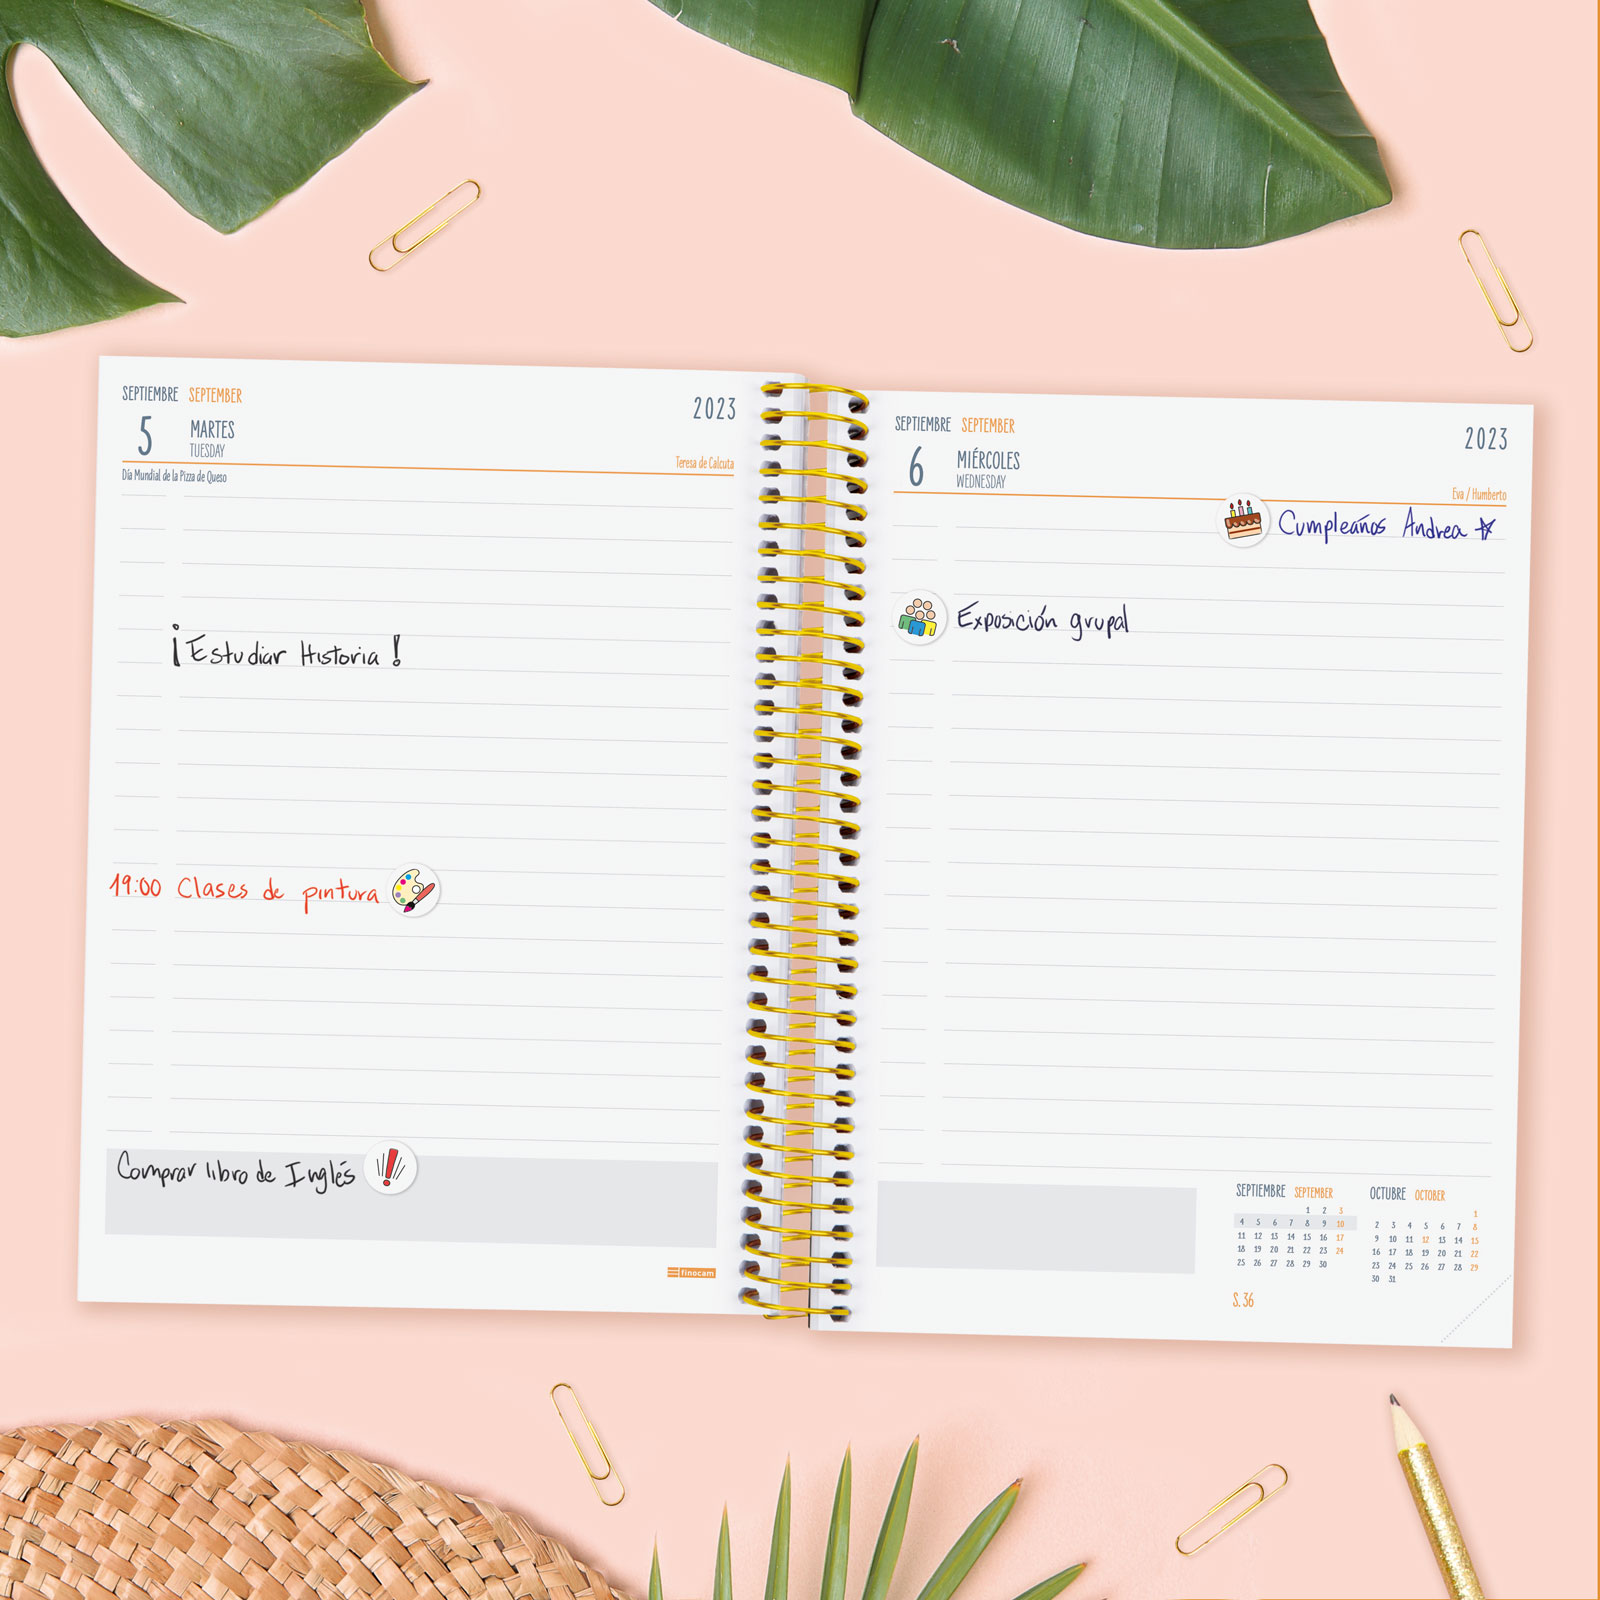 SEPTIEMBRE SEPTEMBER
2023
5 MARTES
TUESDAY
Teresa de Calcuta
Día Mundial de la Pizza de Queso
¡Estudiar Historia!
19:00 Clases de pintura
Comprar libro de Inglés
finocam
SEPTIEMBRE SEPTEMBER
2023
6 MIÉRCOLES
WEDNESDAY
Eva / Humberto
Cumpleaños Andrea
Exposición grupal
SEPTIEMBRE SEPTEMBER
1 2 3
4 5 6 7 8 9 10
11 12 13 14 15 16 17
18 19 20 21 22 23 24
25 26 27 28 29 30
OCTUBRE OCTOBER
1
2 3 4 5 6 7 8
9 10 11 12 13 14 15
16 17 18 19 20 21 22
23 24 25 26 27 28 29
30 31
S. 36